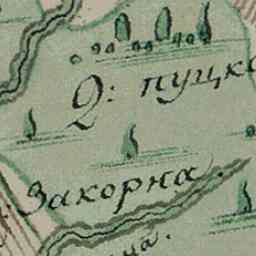 Д: пуцка
Закорна.
на.